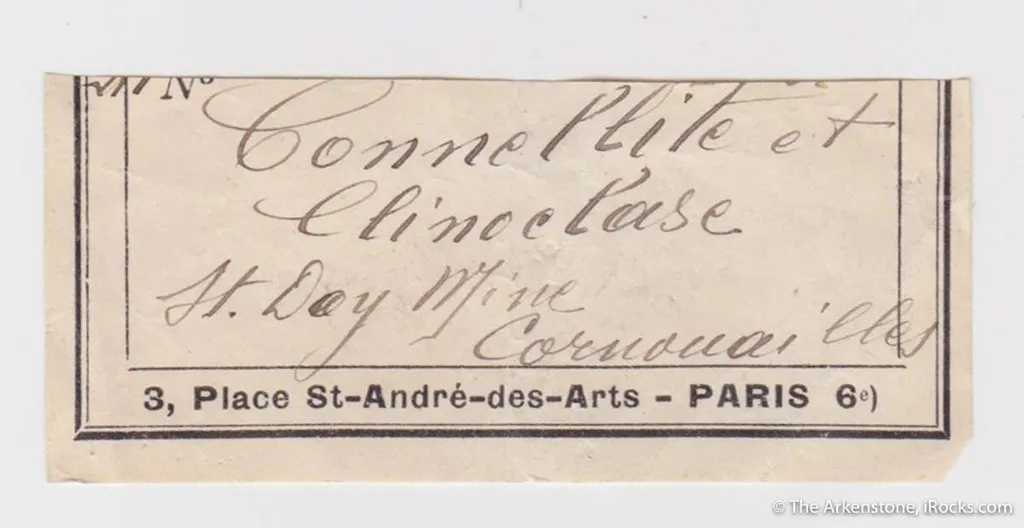 Nº
Connellite et
Clinoclase
St. Day Mine
Cornouailles
3, Place St-André-des-Arts - PARIS 6e)
© The Arkenstone, iRocks.com